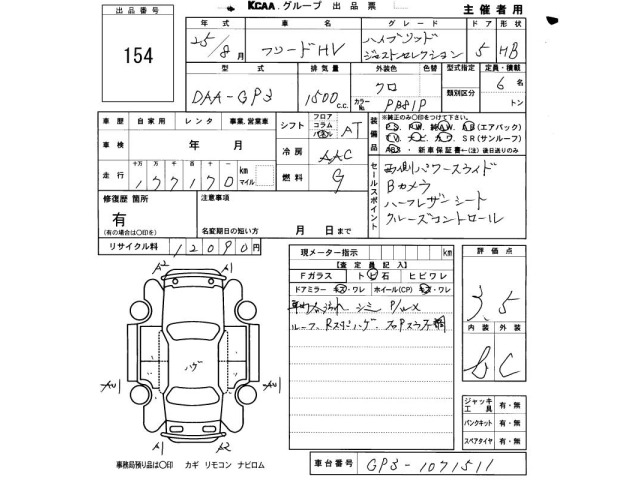 KCAA グループ 出品票 主催者用
出品番号 154
年式 車名 グレード ドア 形状
25/8月 フリードHV ハイブリッド
ジャストセレクション 5 HB
型式 排気量 外装色 色替 型式指定 定員・積載
DAA-GP3 1500 c.c. クロ 6名
カラーNo. PB81P 類別区分 トン
車歴 自家用 レンタ 事業、営業車
シフト フロア コラム パネル AT
車検 年 月
冷房 AAC
走行 十万 万 千 百 十 一 km マイル
177170
燃料 G
装備品 ※純正のみ〇印をつけて下さい。
P.S. P.W. 純A.W. A.B(エアバック)
T.V. ナビ. カワ. S R(サンルーフ)
ABS・新車保証書←(注)後日送りのみ
セールスポイント
両側パワースライド
Bカメラ
ハーフレザーシート
クルーズコントロール
修復歴 箇所 有 (有の場合は〇印を)
注意事項
名変期日の短い方 月 日まで
リサイクル料 12090円
現メーター指示 km
【査定員記入】
Fガラス トビ石 ヒビワレ
ドアミラー キズ・ワレ ホイール(CP) キズ・ワレ
シミ
評価点 3.5
内装 外装
b C
A2 A1
AU ハゲ AU
A1 A2
事務局預り品は〇印 カギ リモコン ナビロム
ジャッキ 工具 有・無
パンクキット 有・無
スペアタイヤ 有・無
車台番号 GP3-1071511